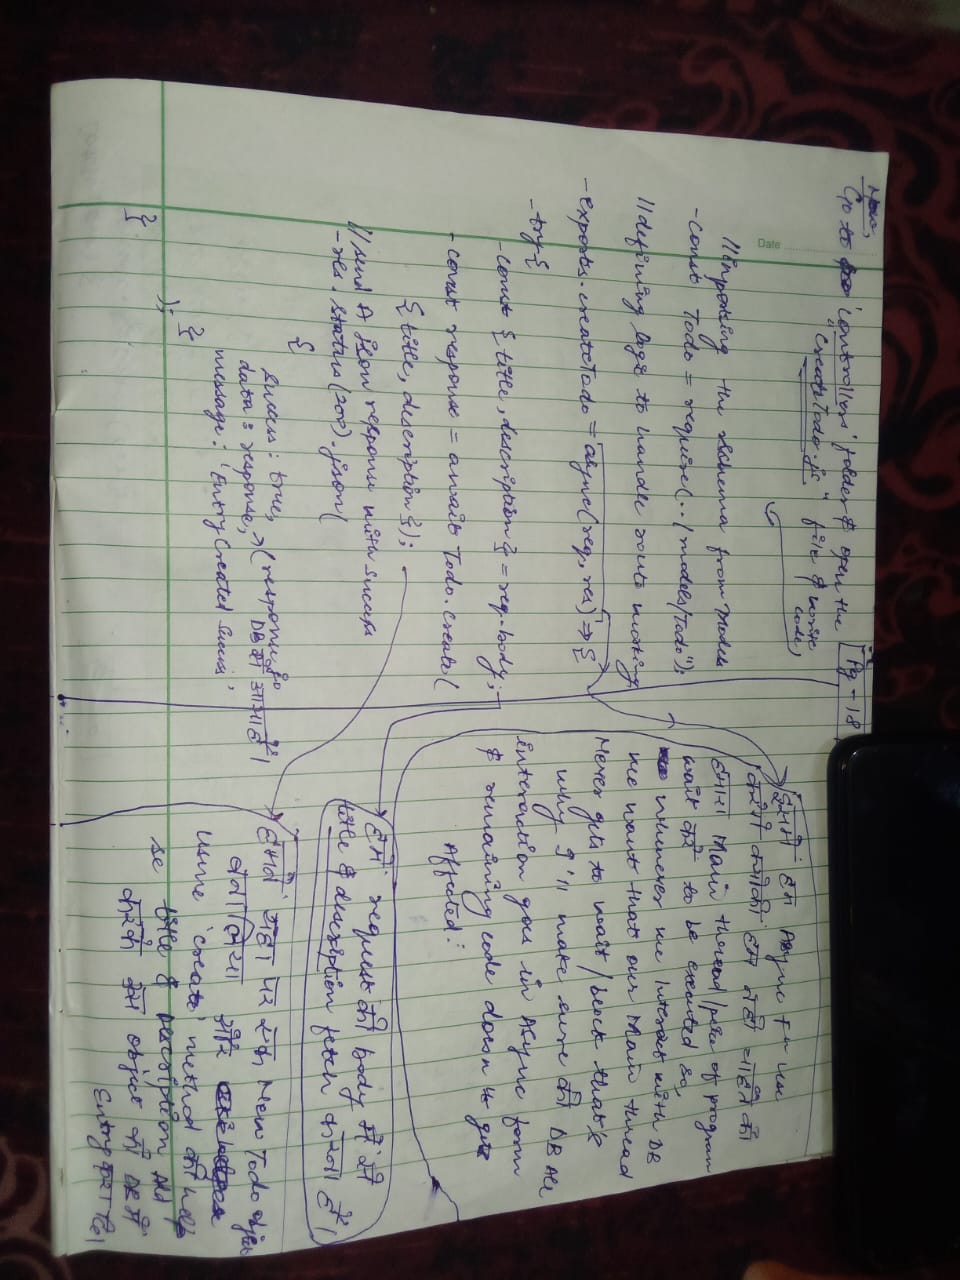 Now,
Go to 'Controllers' folder & open the
"CreateTodo.js" file & write
code,
Pg - 18
Date
//Importing the schema from Models
- const Todo = require("../models/Todo");
//defining logic to handle route working
- exports.createTodo = async(req, res) => {
- try {
- const { title, description } = req.body;
- const response = await Todo.create(
{ title, description });
// send A json response with success
- res.status(200).json(
{
success: true,
data: response, → (response jo
DB से आया है।
message: 'Entry Created Success',
}
);
}
इसमें हम Async fn use
करेंगे क्योंकि हम नहीं चाहते की
हमारा Main thread / part of program
wait करें to be executed so,
whenever we interact with DB
we want that our Main thread
Never gets to wait / block that's
why I'll make sure की DB All
interaction goes in Async form
& remaining code doesn't get
Affected.
हम request की body में से
title & description fetch करना है।
हमने यहा पर एक New Todo object
बना लिया
using 'create' method की help
se title & description Add
करके उस object को DB में
Entry कर दि।